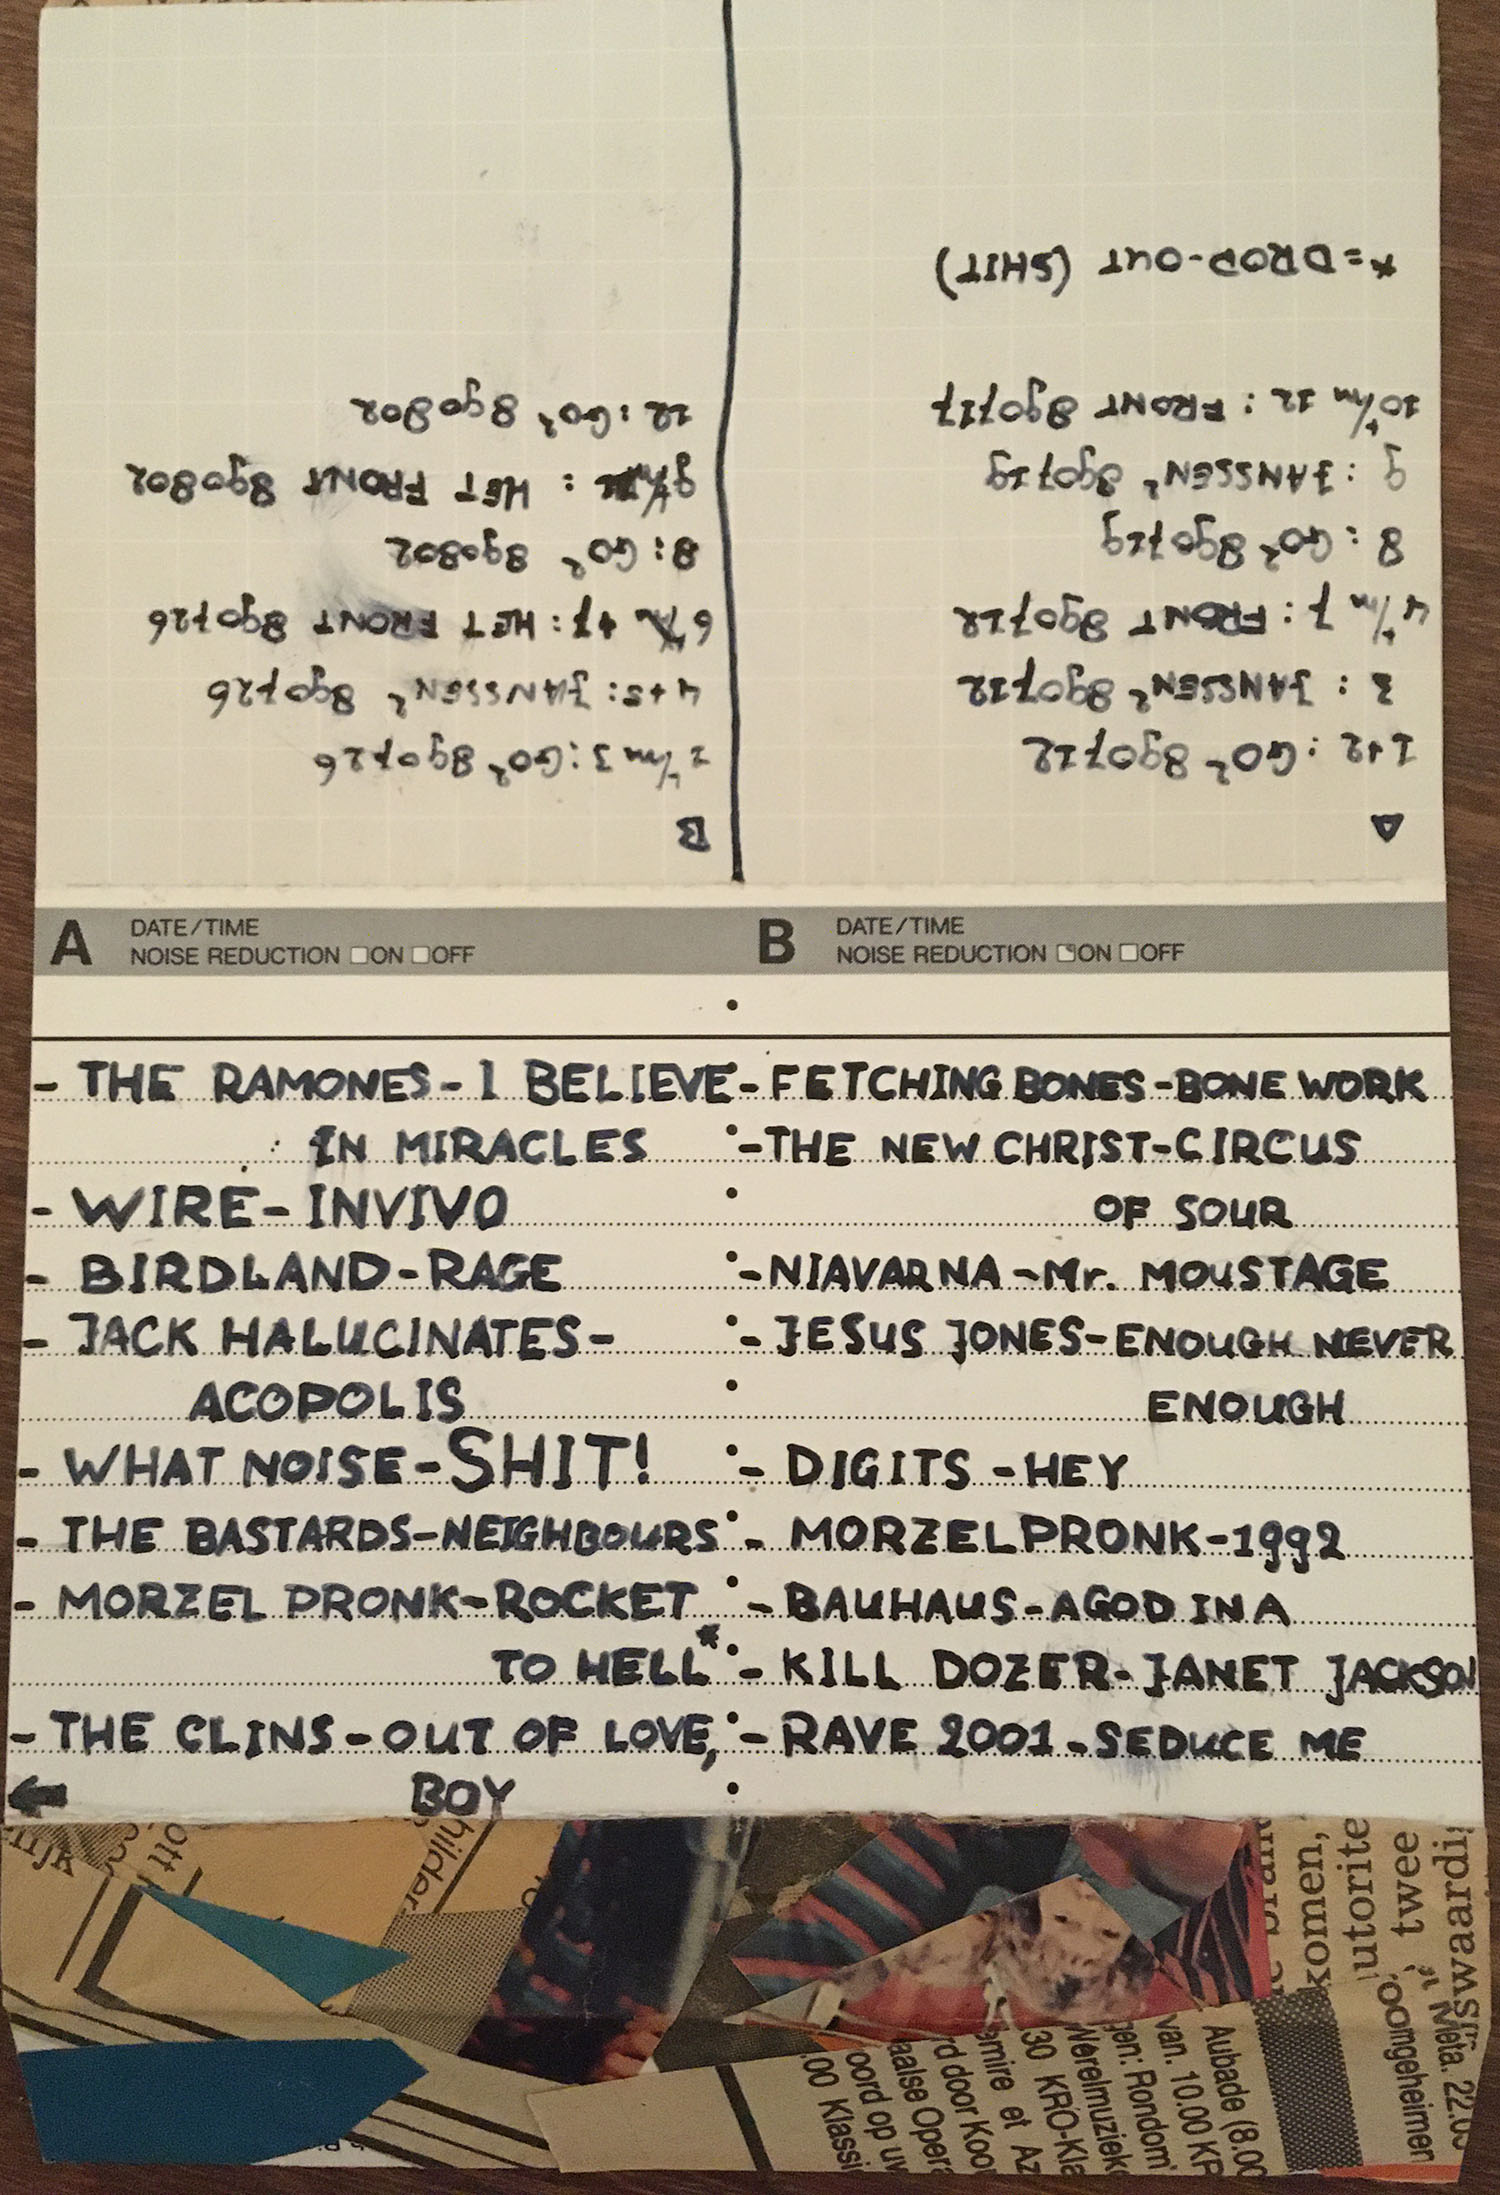 A
1+2 : GO² 890712
3 : JANSSEN² 890712
4 t/m 7 : FRONT 890712
8 : GO² 890719
9 : JANSSEN² 890719
10 t/m 12 : FRONT 890717
*=DROP-OUT (SHIT)
B
1 t/m 3 : GO² 890726
4+5: JANSSEN² 890726
6 +7: HET FRONT 890726
8: GO² 890802
9 : HET FRONT 890802
12: GO² 890802
A DATE/TIME
NOISE REDUCTION ON OFF
- THE RAMONES - I BELIEVE
IN MIRACLES
- WIRE - INVIVO
- BIRDLAND - RAGE
- JACK HALUCINATES -
ACOPOLIS
- WHAT NOISE - SHIT!
- THE BASTARDS - NEIGHBOURS
- MORZEL PRONK - ROCKET
TO HELL*
- THE CLINS - OUT OF LOVE,
BOY
B DATE/TIME
NOISE REDUCTION ON OFF
- FETCHING BONES - BONE WORK
- THE NEW CHRIST - CIRCUS
OF SOUR
- NIAVARNA - Mr. MOUSTAGE
- JESUS JONES - ENOUGH NEVER
ENOUGH
- DIGITS - HEY
- MORZEL PRONK - 1992
- BAUHAUS - A GOD IN A
- KILL DOZER - JANET JACKSON
- RAVE 2001 - SEDUCE ME
ott
hilder
komen,
utorite
twee
swaardi
Meta. 22.0
oomgeheimen
Aubade (8.00
van. 10.00 KR
gen: Rondom
Werelmuziek
30 KRO-Kla
emire et Az
rd door Koo
aalse Opera
oord op uw
.00 Klassi